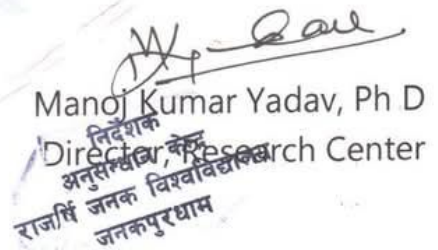 Manoj Kumar Yadav, Ph D
निर्देशक
Director, Research Center
अनुसन्धान केन्द्र
राजर्षि जनक विश्वविद्यालय
जनकपुरधाम